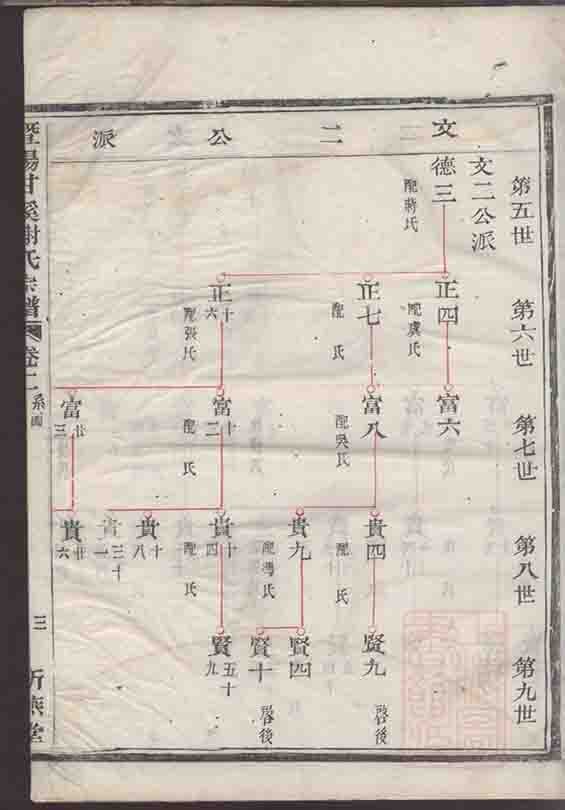 文二公派
第五世
第六世
第七世
第八世
第九世
文二公派
德三
配蔣氏
正四
配虞氏
正七
配 氏
正十六
配張氏
富六
富八
配吳氏
富十二
配 氏
富廿三
貴四
配 氏
貴九
配馮氏
貴十四
配 氏
貴十八
貴三十一
貴廿六
賢九
啓後
賢四
賢十
啓後
賢五十九
暨陽甘溪謝氏宗譜
卷二
系圖
三